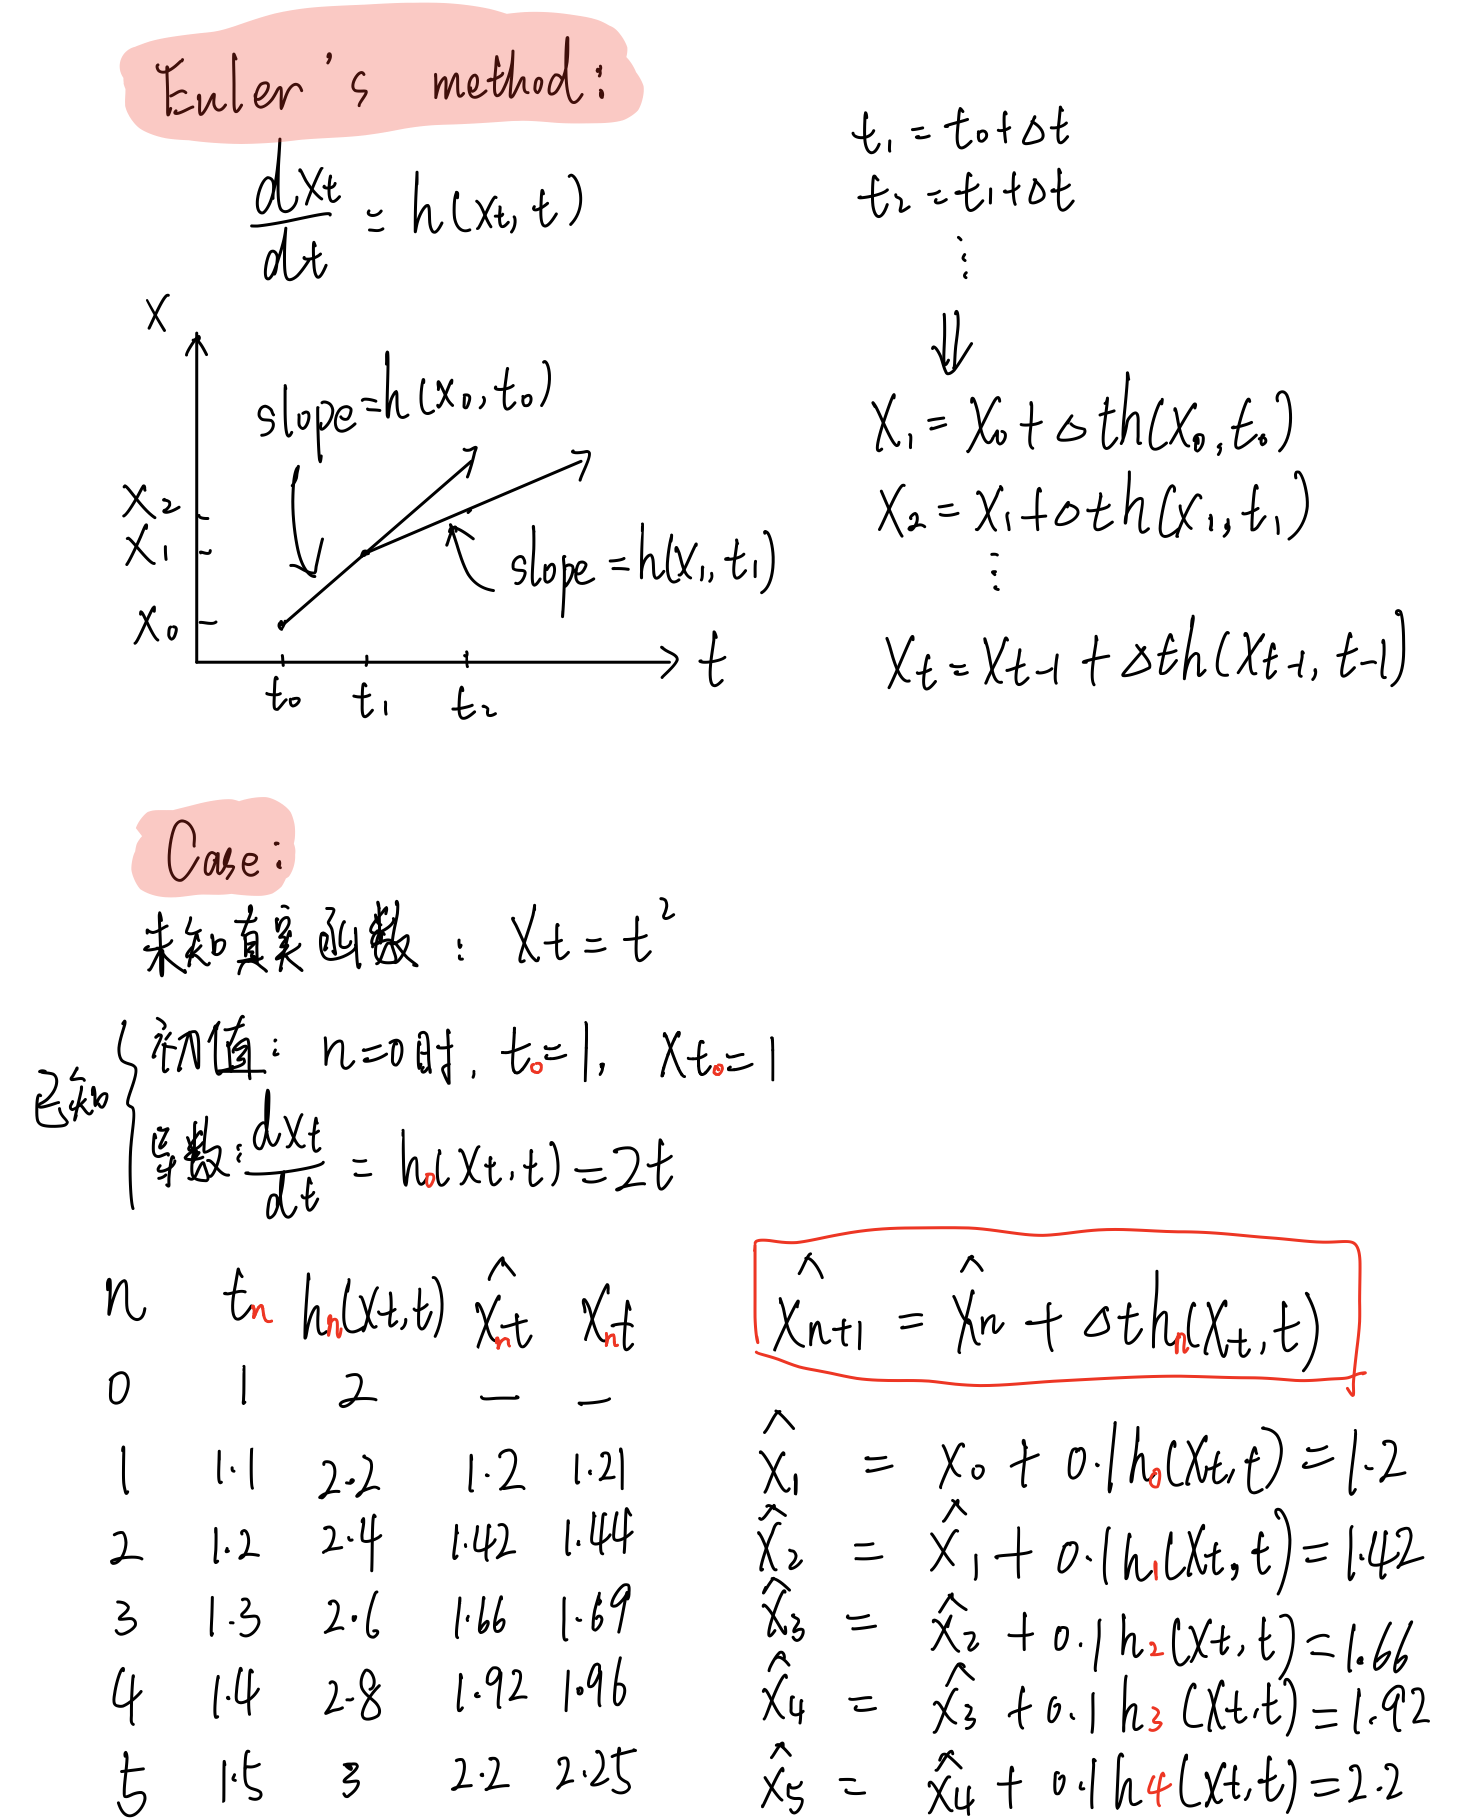 Euler's method:
dxt/dt = h(xt, t)
t₁ = t₀ + Δt
t₂ = t₁ + Δt
⋮
⇓
X₁ = X₀ + Δth(X₀, t₀)
X₂ = X₁ + Δth(X₁, t₁)
⋮
Xt = Xt-1 + Δth(Xt-1, t-1)
X
slope = h(x₀, t₀)
X₂
X₁
slope = h(x₁, t₁)
X₀
t
t₀ t₁ t₂
Case:
未知真实函数: Xt = t²
已知
初值: n=0时, t₀=1, Xt₀=1
导数: dxt/dt = h₀(xt, t) = 2t
n tn hn(xt, t) x̂nt xnt
0 1 2 — —
1 1.1 2.2 1.2 1.21
2 1.2 2.4 1.42 1.44
3 1.3 2.6 1.66 1.69
4 1.4 2.8 1.92 1.96
5 1.5 3 2.2 2.25
x̂n+1 = x̂n + Δthn(xt, t)
x̂₁ = x₀ + 0.1h₀(xt, t) = 1.2
x̂₂ = x̂₁ + 0.1h₁(xt, t) = 1.42
x̂₃ = x̂₂ + 0.1h₂(xt, t) = 1.66
x̂₄ = x̂₃ + 0.1h₃(xt, t) = 1.92
x̂₅ = x̂₄ + 0.1h₄(xt, t) = 2.2